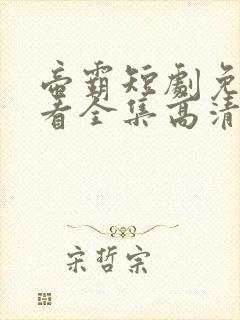 帝霸短劇免
看全集高清
宋哲宗